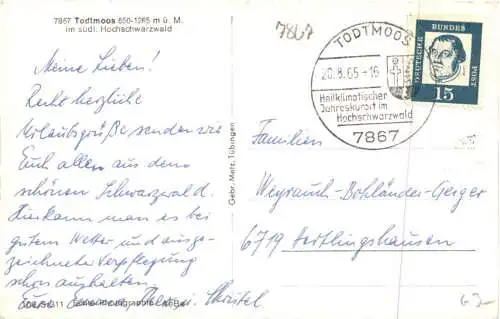 7867 Todtmoos 850-1265 m ü. M.
im südl. Hochschwarzwald
Meine Lieben!
Recht herzliche
Urlaubsgrüße senden wir
Euch allen aus dem
schönen Schwarzwald.
Hier kann man es bei
gutem Wetter und ausge-
zeichnete Verpflegung
schon aushalten.
Eure
Gebr. Metz, Tübingen
7867
TODTMOOS
20.8.65-16
Heilklimatischer
Jahreskurort im
Hochschwarzwald
7867
DEUTSCHE BUNDESPOST
15
Familien
Weyrauch-Bohländer-Gerger
6719 Hertlingshausen
63.-